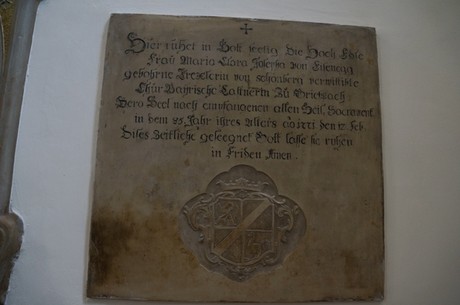 Hier ruhet in Gott seelig Die Hoch Edle
Frau Maria Clara Josepha von
gebohrne Tresslerin von schönberg verwittibte
Chur Bayrische Castnerin Zu Griesbach:
Dero Seel nach empfangenen allen Heil: Sacrament:
in dem Jahr ihres Alters den 17 Feb
dises Zeitliche geseegnet Gott lasse sie ruhen
in Friden Amen.